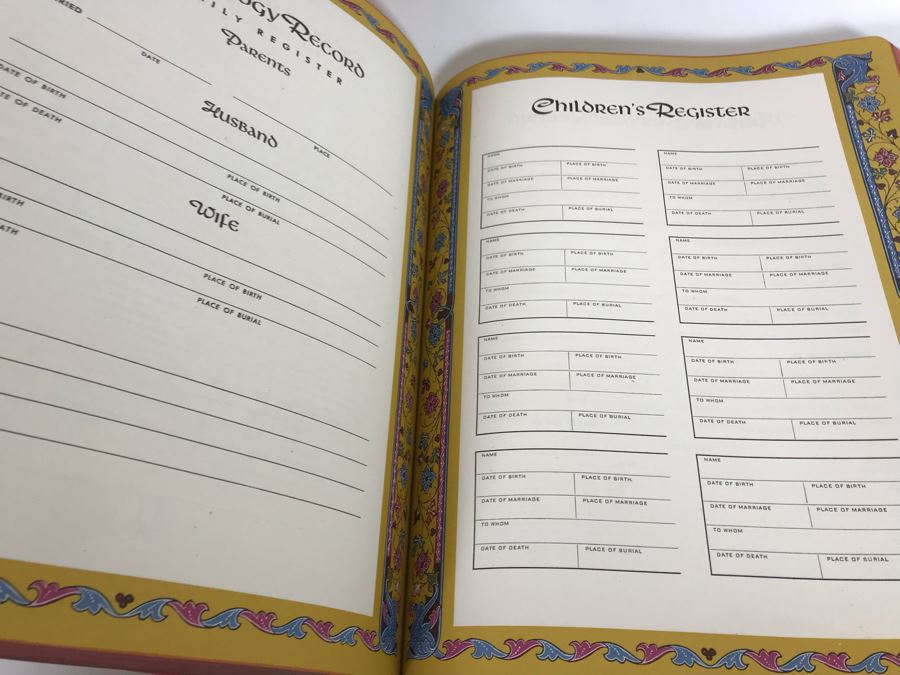 OGY RECORD
FAMILY REGISTER
PARENTS
RRIED
DATE
PLACE
HUSBAND
DATE OF BIRTH
PLACE OF BIRTH
TE OF DEATH
PLACE OF BURIAL
WIFE
BIRTH
PLACE OF BIRTH
ATH
PLACE OF BURIAL
CHILDREN'S REGISTER
NAME
DATE OF BIRTH PLACE OF BIRTH
DATE OF MARRIAGE PLACE OF MARRIAGE
TO WHOM
DATE OF DEATH PLACE OF BURIAL
NAME
DATE OF BIRTH PLACE OF BIRTH
DATE OF MARRIAGE PLACE OF MARRIAGE
TO WHOM
DATE OF DEATH PLACE OF BURIAL
NAME
DATE OF BIRTH PLACE OF BIRTH
DATE OF MARRIAGE PLACE OF MARRIAGE
TO WHOM
DATE OF DEATH PLACE OF BURIAL
NAME
DATE OF BIRTH PLACE OF BIRTH
DATE OF MARRIAGE PLACE OF MARRIAGE
TO WHOM
DATE OF DEATH PLACE OF BURIAL
NAME
DATE OF BIRTH PLACE OF BIRTH
DATE OF MARRIAGE PLACE OF MARRIAGE
TO WHOM
DATE OF DEATH PLACE OF BURIAL
NAME
DATE OF BIRTH PLACE OF BIRTH
DATE OF MARRIAGE PLACE OF MARRIAGE
TO WHOM
DATE OF DEATH PLACE OF BURIAL
NAME
DATE OF BIRTH PLACE OF BIRTH
DATE OF MARRIAGE PLACE OF MARRIAGE
TO WHOM
DATE OF DEATH PLACE OF BURIAL
NAME
DATE OF BIRTH PLACE OF BIRTH
DATE OF MARRIAGE PLACE OF MARRIAGE
TO WHOM
DATE OF DEATH PLACE OF BURIAL